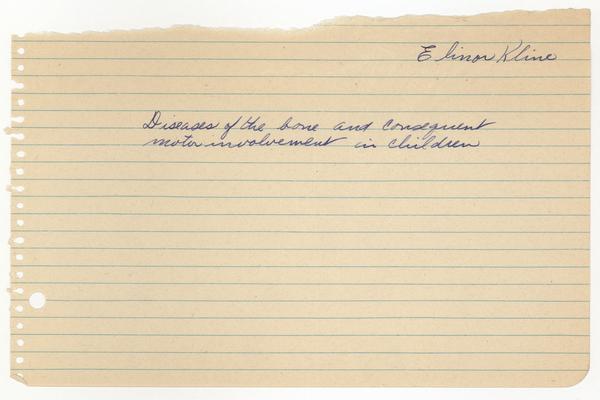 Elinor Kline
Diseases of the bone and consequent
motor involvement in children